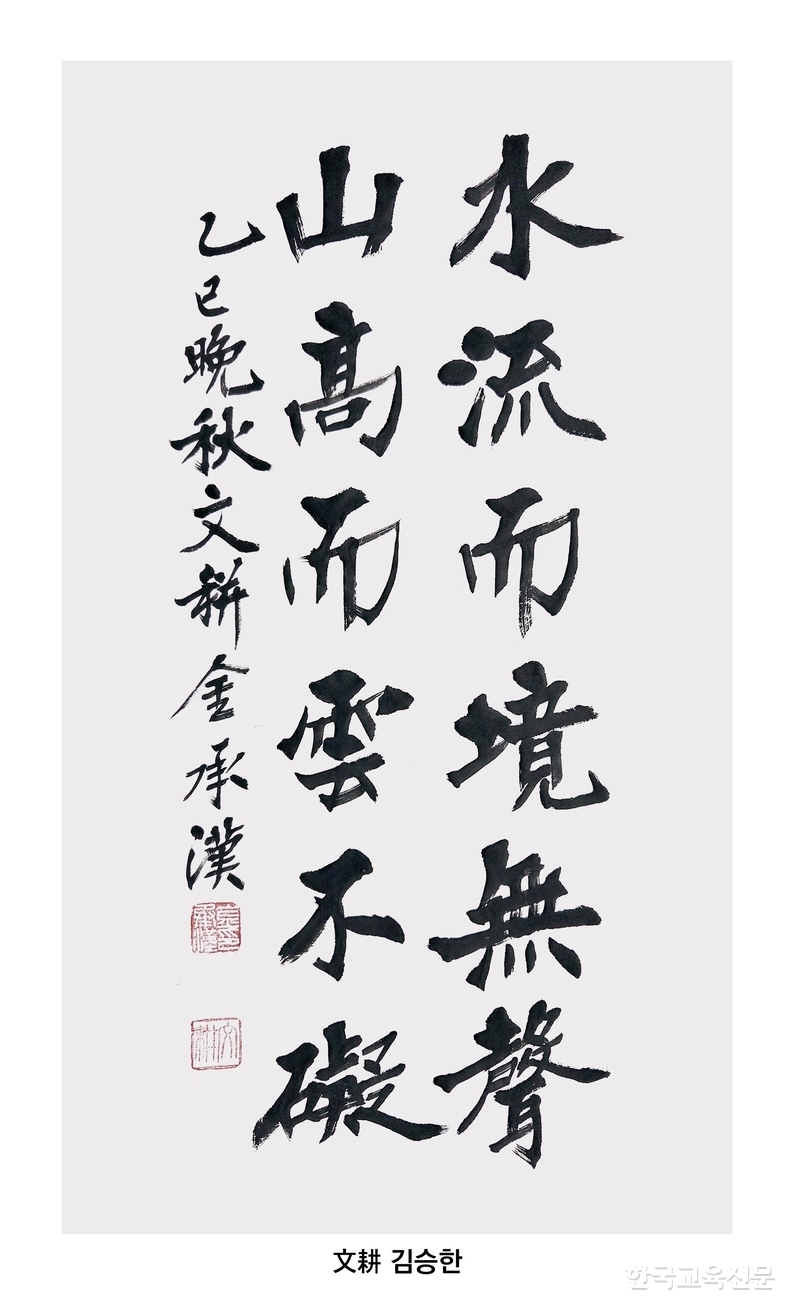 水流而境無聲
山高而雲不礙
乙巳晩秋文耕金承漢
文耕 김승한
한국교육신문